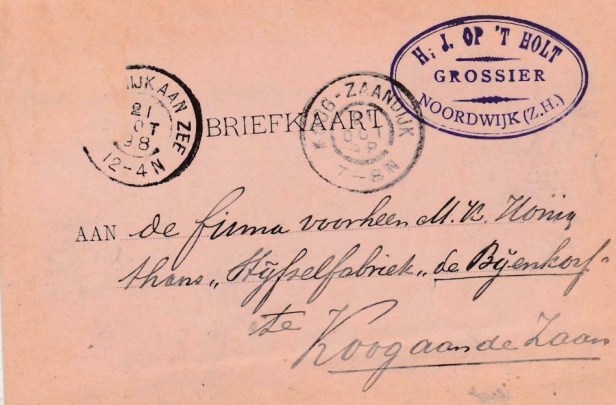 H. J. OP 'T HOLT
GROSSIER
NOORDWIJK (Z.H.)
IJK AAN ZEE
21
OT
98
12-4N
KOOG-ZAANDIJK
OCT
98
7-8N
BRIEFKAART
AAN de firma voorheen M. K. Honig
thans „Stijfselfabriek „de Bijenkorf"
te
Koog aan de Zaan